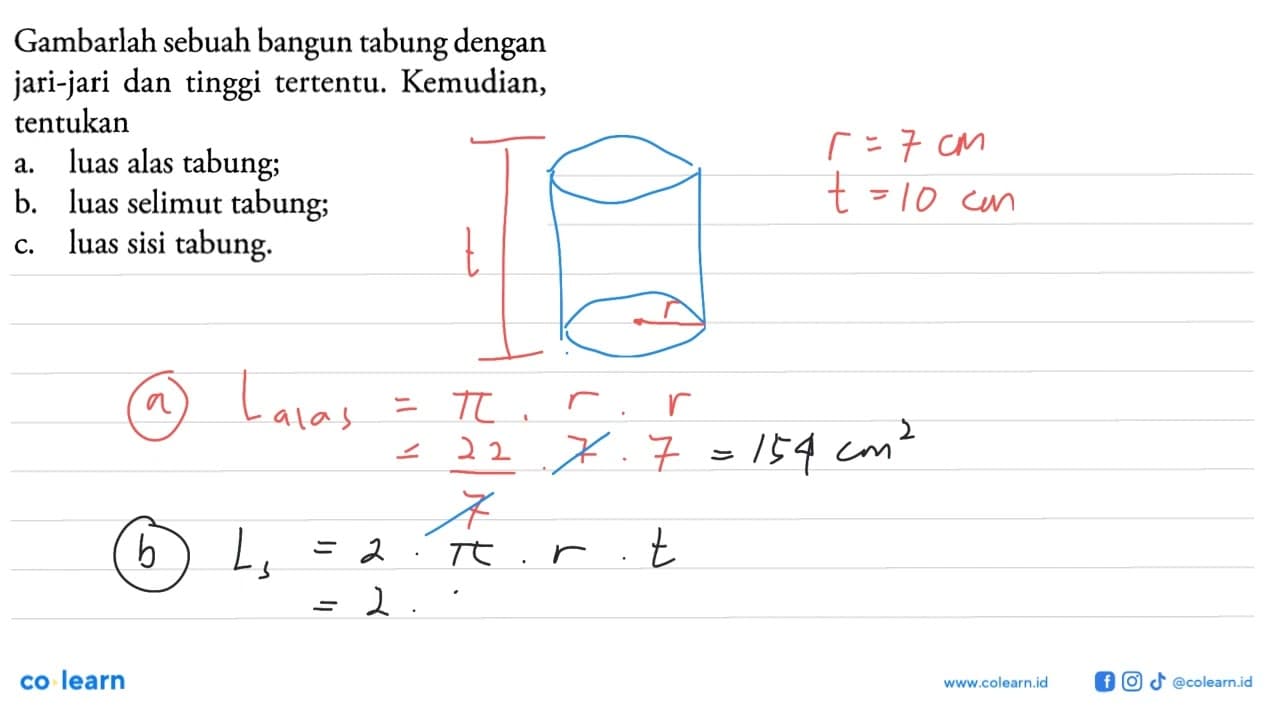 Gambarlah sebuah bangun tabung dengan
jari-jari dan tinggi tertentu. Kemudian,
tentukan
a. luas alas tabung;
b. luas selimut tabung;
c. luas sisi tabung.
r = 7 cm
t = 10 cm
t
r
a L alas = π . r . r
= 22/7 . 7 . 7 = 154 cm²
b Ls = 2 . π . r . t
= 2 .
co learn
www.colearn.id
@colearn.id